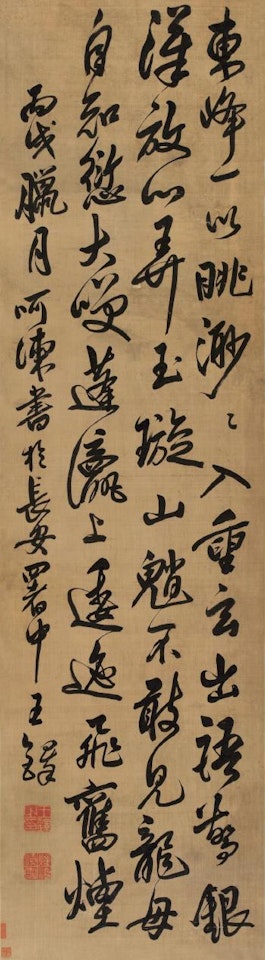 東峰一以眺渺〻入重云出語驚銀
漢放心弄玉璇山魈不敢見龍母
自知愆大蓬瀛上逶迤飛舊煙
丙戌臘月呵凍書於長安署中王鐸